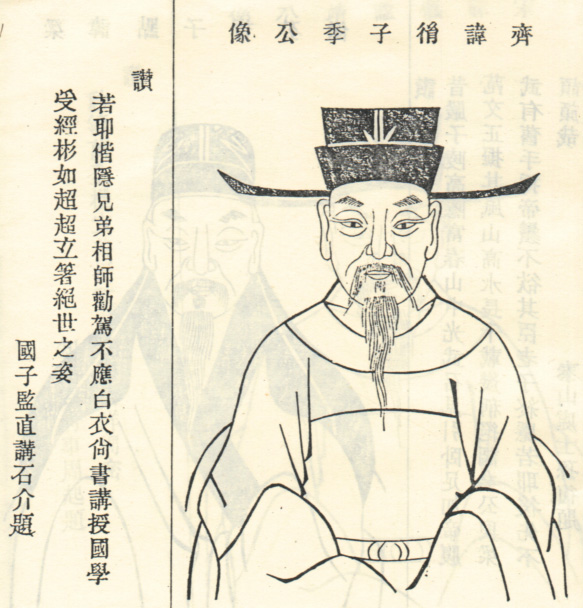 齊諱㣧子季公像
讚
若耶偕隱兄弟相師勸駕不應白衣尙書講授國學
受經彬如超超立箸絕世之姿
國子監直講石介題